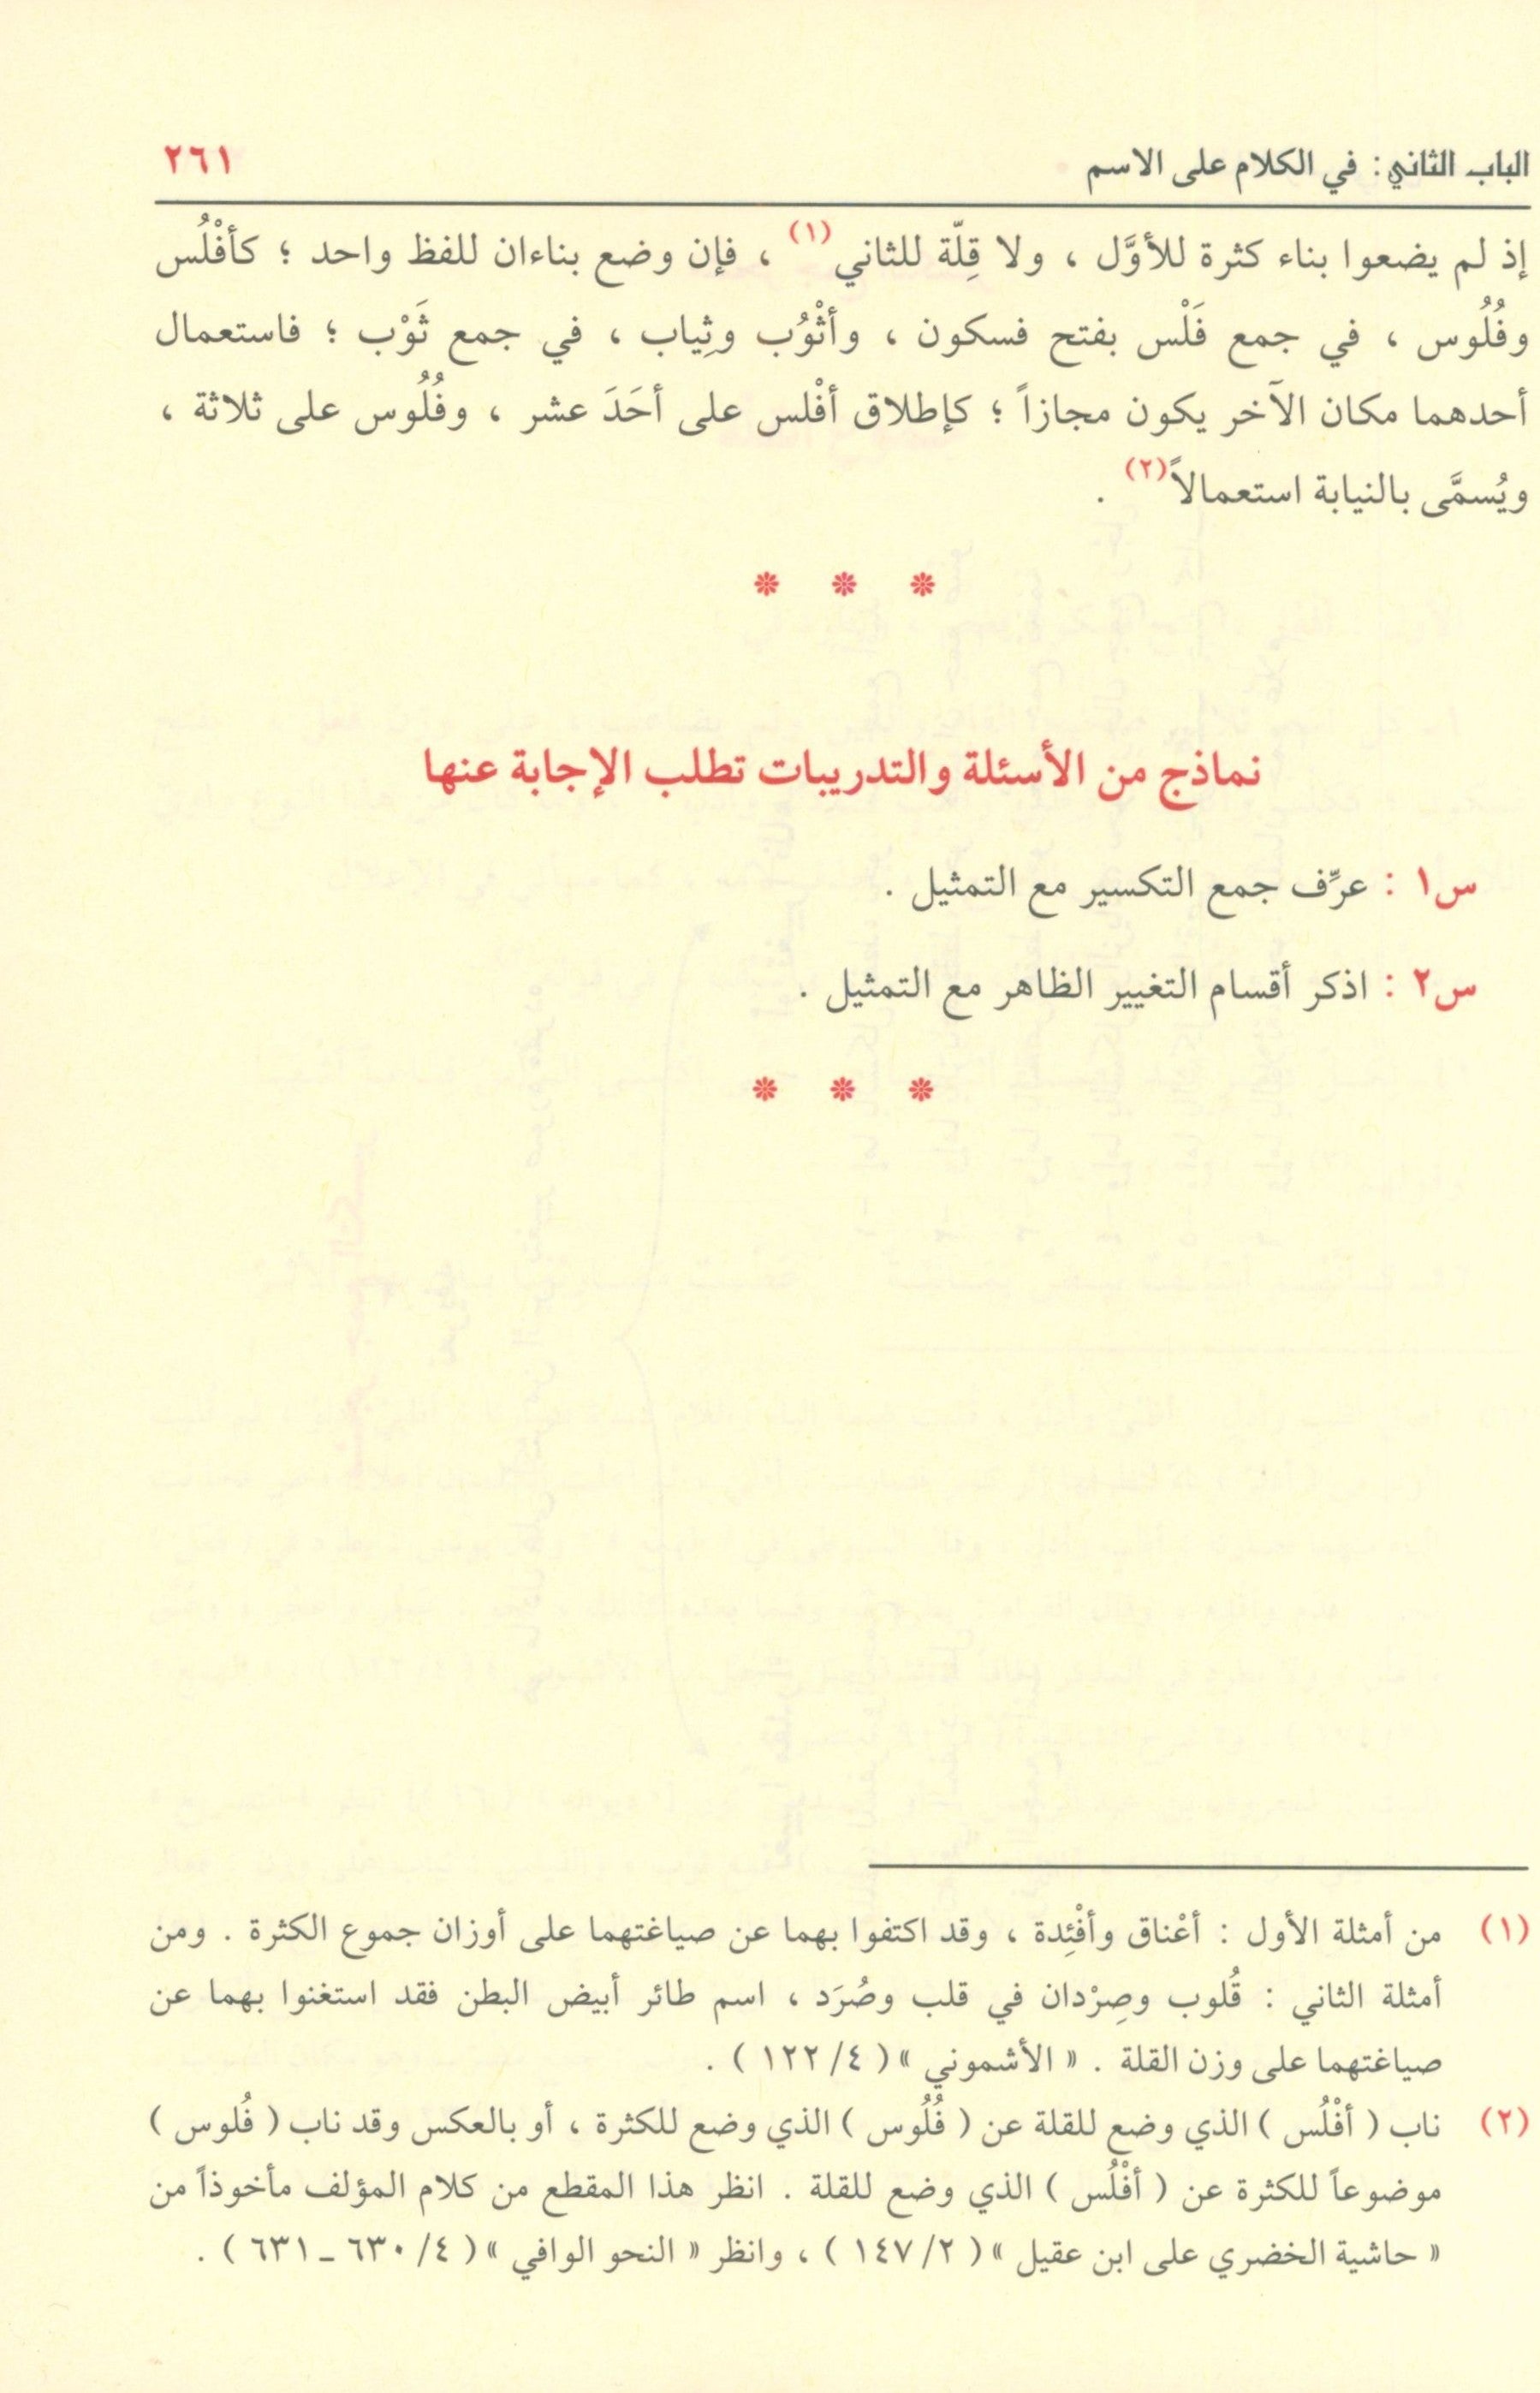 الباب الثاني: في الكلام على الاسم ٢٦١
إذ لم يضعوا بناء كثرة للأوَّل ، ولا قِلّة للثاني (١) ، فإن وضع بناءان للفظ واحد ؛ كأفْلُس
وفُلُوس ، في جمع فَلْس بفتح فسكون ، وأثْوُب وثِياب ، في جمع ثَوْب ؛ فاستعمال
أحدهما مكان الآخر يكون مجازاً ؛ كإطلاق أفْلس على أحَدَ عشر ، وفُلُوس على ثلاثة ،
ويُسمَّى بالنيابة استعمالاً(٢) .
* * *
نماذج من الأسئلة والتدريبات تطلب الإجابة عنها
س١ : عرِّف جمع التكسير مع التمثيل .
س٢ : اذكر أقسام التغيير الظاهر مع التمثيل .
* * *
(١) من أمثلة الأول : أعْناق وأفْئِدة ، وقد اكتفوا بهما عن صياغتهما على أوزان جموع الكثرة . ومن
أمثلة الثاني : قُلوب وصِرْدان في قلب وصُرَد ، اسم طائر أبيض البطن فقد استغنوا بهما عن
صياغتهما على وزن القلة . « الأشموني » ( ٤/ ١٢٢ ) .
(٢) ناب ( أفْلُس ) الذي وضع للقلة عن ( فُلُوس ) الذي وضع للكثرة ، أو بالعكس وقد ناب ( فُلوس )
موضوعاً للكثرة عن ( أفْلُس ) الذي وضع للقلة . انظر هذا المقطع من كلام المؤلف مأخوذاً من
« حاشية الخضري على ابن عقيل » ( ٢/ ١٤٧ ) ، وانظر « النحو الوافي » ( ٤/ ٦٣٠ ـ ٦٣١ ) .